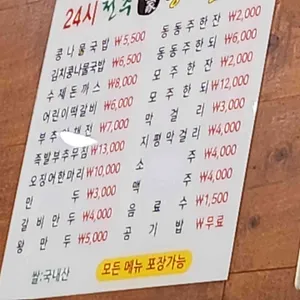 24시 전주
콩나물국밥 ₩5,500
김치콩나물국밥 ₩6,500
수제돈까스 ₩8,000
어린이떡갈비 ₩6,000
부추 전 ₩7,000
족발부추무침 ₩13,000
오징어한마리 ₩10,000
만두 ₩3,000
갈비만두 ₩4,000
왕만두 ₩5,000
동동주한잔 ₩2,000
동동주 ₩6,000
모주한잔 ₩2,000
모주한되 ₩12,000
막걸리 ₩3,000
지평막걸리 ₩4,000
소주 ₩4,000
맥주 ₩4,000
음료수 ₩1,500
공기밥 ₩무료
쌀:국내산
모든 메뉴 포장가능